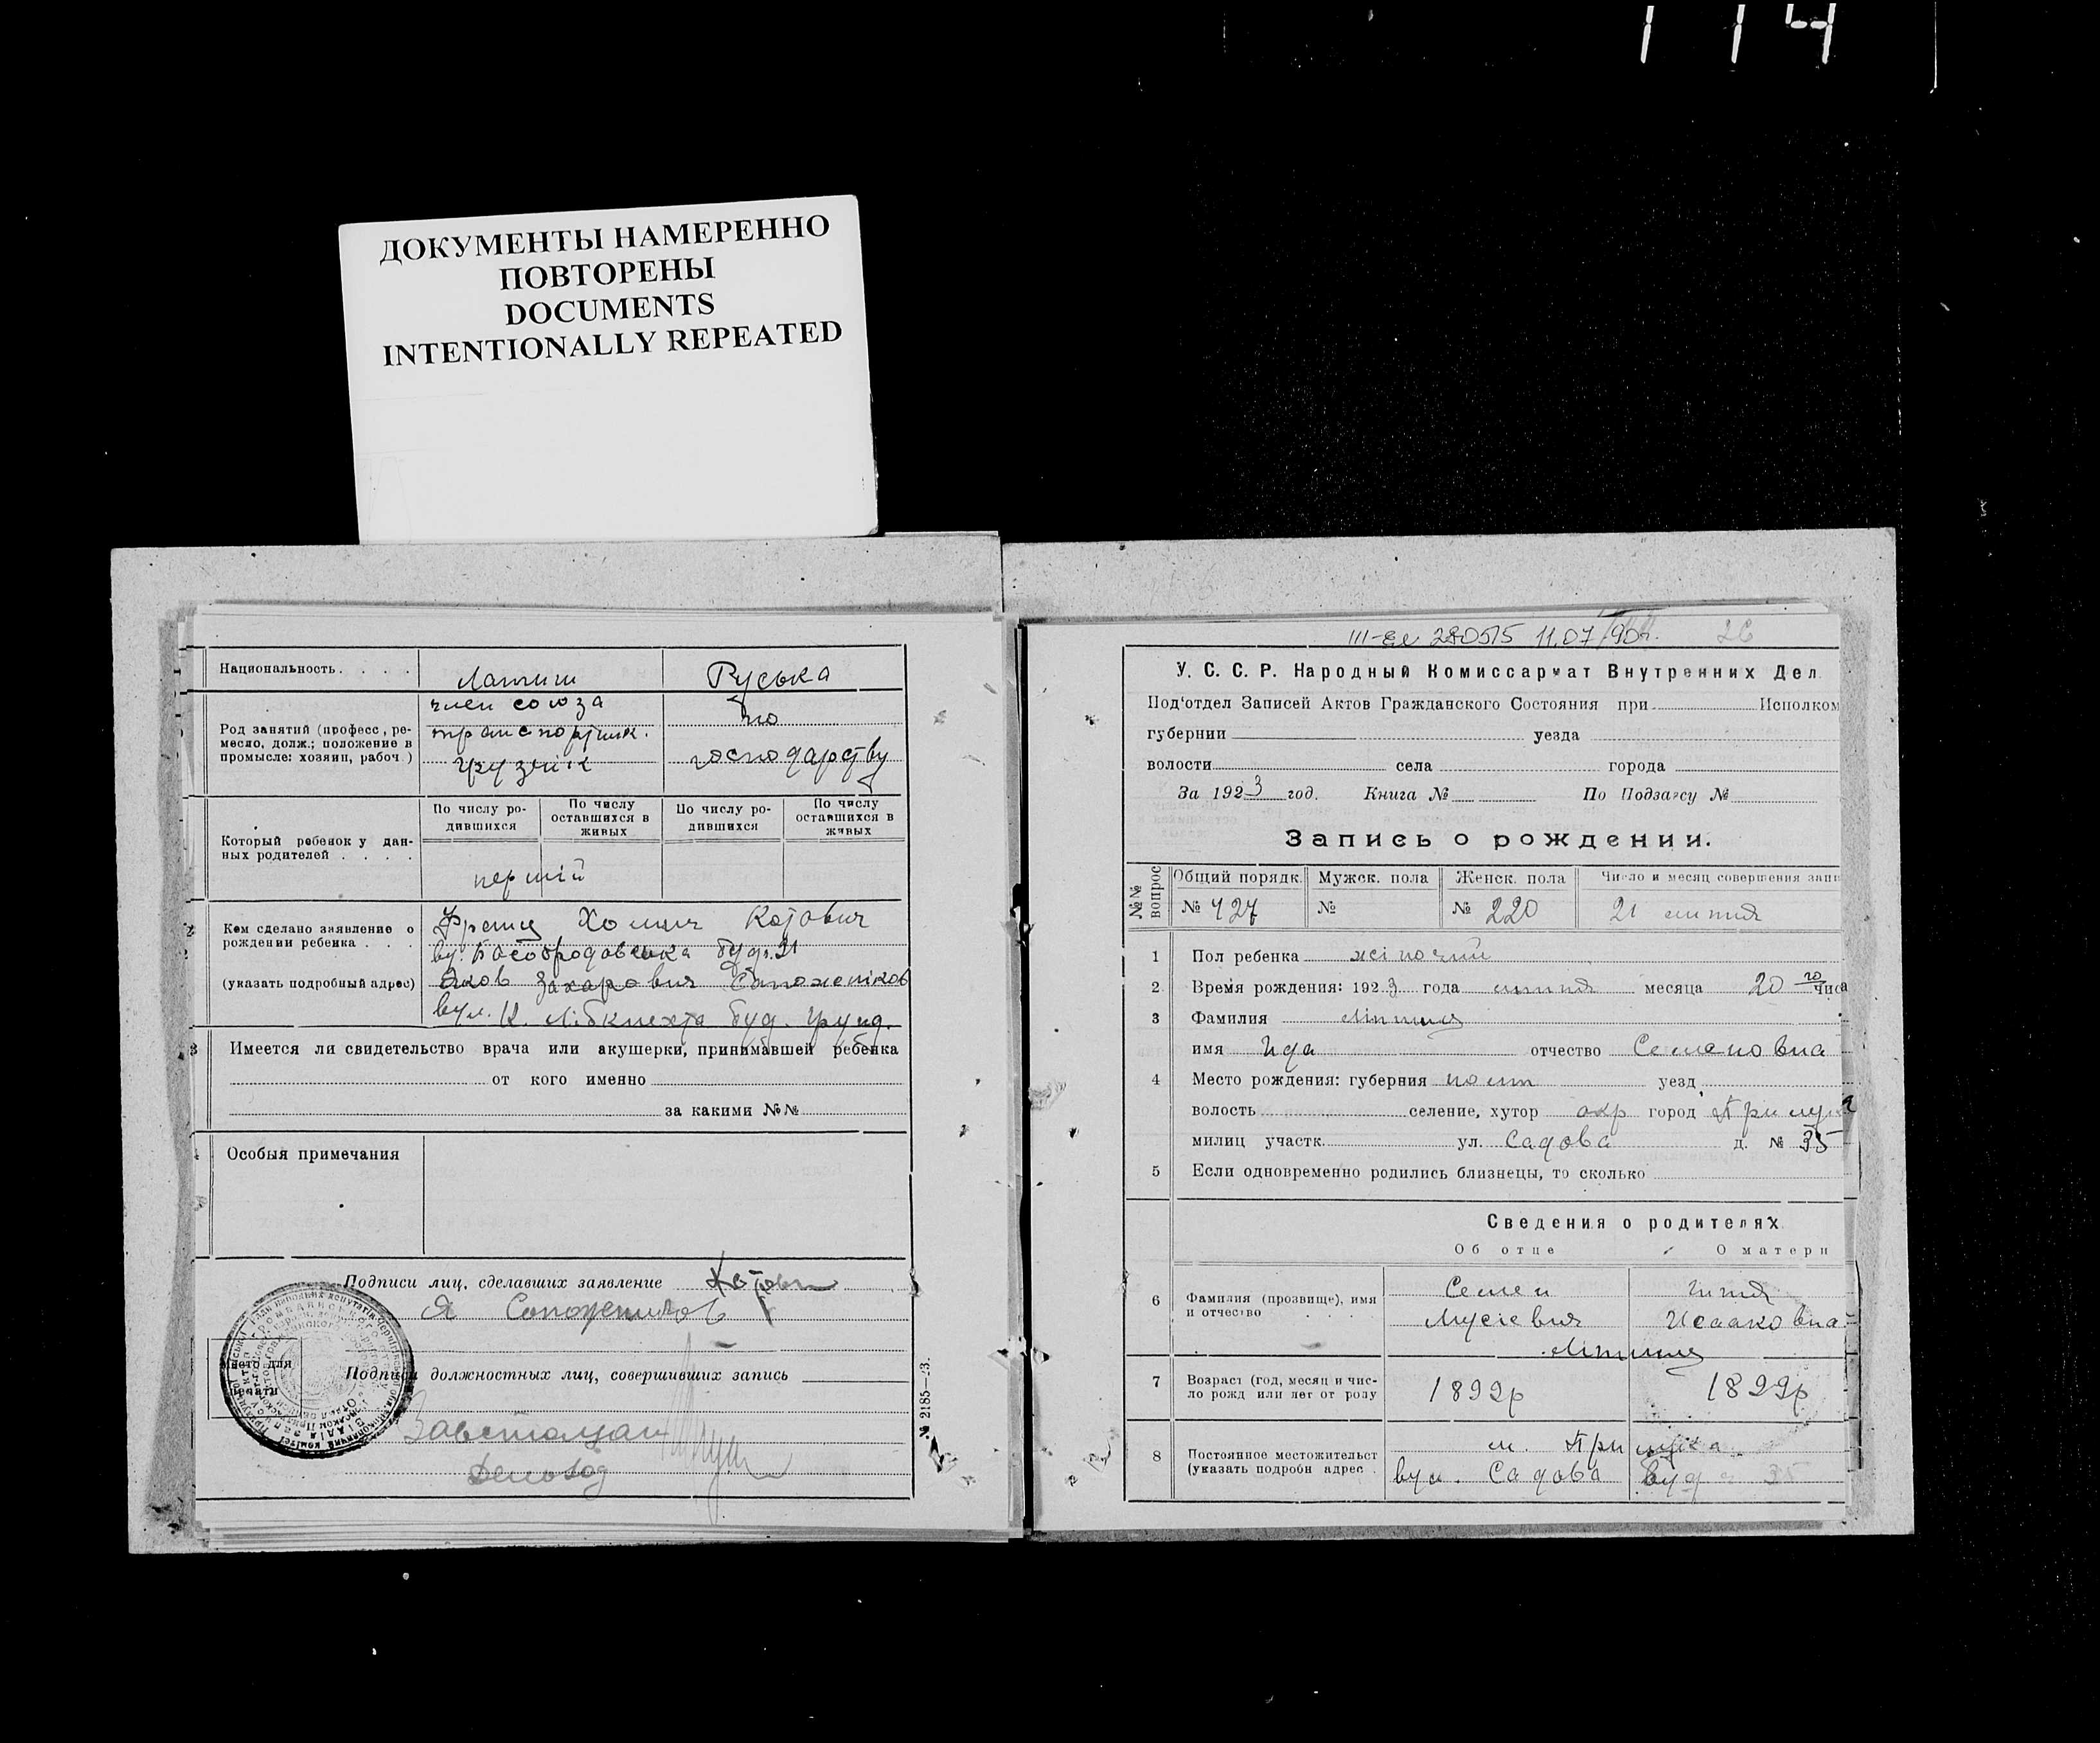 114
ДОКУМЕНТЫ НАМЕРЕННО
ПОВТОРЕНЫ
DOCUMENTS
INTENTIONALLY REPEATED
Национальность. . . . Латиш Руська
Род занятий (професс, ремесло, долж.; положение в промысле: хозяин, рабоч.)
член союза
транспортник.
грузчік
по
господарству
Который ребенок у данных родителей . . . .
По числу родившихся
По числу оставшихся в живых
По числу родившихся
По числу оставшихся в живых
перший
Кем сделано заявление о рождении ребенка . . .
(указать подробный адрес)
Франц Хомич Котович
буд. 21
Яков Захарович Сапожніков
вул. К. Лібкнехта буд.
Имеется ли свидетельство врача или акушерки, принимавшей ребенка
от кого именно
за какими №№
Особыя примечания
Подписи лиц, сделавших заявление Котович
Я Сопожников
Место для печати
Подписи должностных лиц, совершивших запись
Завстолом
Діловод
№ 2185—23.
III-Ел 280515 11.07.90г. 26
У. С. С. Р. Народный Комиссариат Внутренних Дел
Под'отдел Записей Актов Гражданского Состояния при Исполком
губернии уезда
волости села города
За 1923 год. Книга № По Подзагсу №
Запись о рождении.
№№ вопрос
Общий порядк. Мужск. пола Женск. пола Число и месяц совершения запи
№ 427 № № 220 21 липня
1 Пол ребенка жіночий
2 Время рождения: 1923 года липня месяца 20 го числа
3 Фамилия
имя Ида отчество Семеновна
4 Место рождения: губерния полт уезд
волость селение, хутор окр город Прилука
милиц участк. ул. Садова д. № 35
5 Если одновременно родились близнецы, то сколько
Сведения о родителях
Об отце О матери
6 Фамилия (прозвище), имя и отчество . . . .
Семен
Мусіевич
Исааковна
7 Возраст (год, месяц и число рожд или лет от роду 1892р 1899р
8 Постоянное местожительст (указать подробн адрес .
м. Прилука
вул. Садова буд ч 35